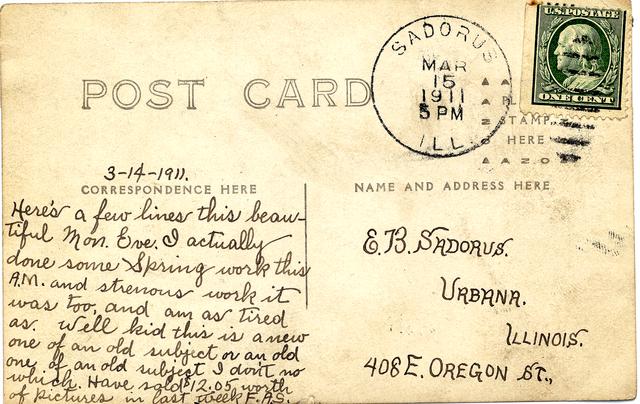 U.S. POSTAGE
ONE CENT
SADORUS
MAR
15
1911
5 PM
ILL.
POST CARD
STAMP
HERE
AZO
3-14-1911.
CORRESPONDENCE HERE
NAME AND ADDRESS HERE
Here's a few lines this beau-
tiful Mon. Eve. I actually
done some Spring work this
A.M. and strenous work it
was too, and am as tired
as. Well kid this is a new
one of an old subject or an old
one of an old subject I dont no
which. Have sold $12.05 worth
of pictures in last week F.A.S.
E.B. SADORUS.
URBANA.
ILLINOIS.
408 E. OREGON ST.,